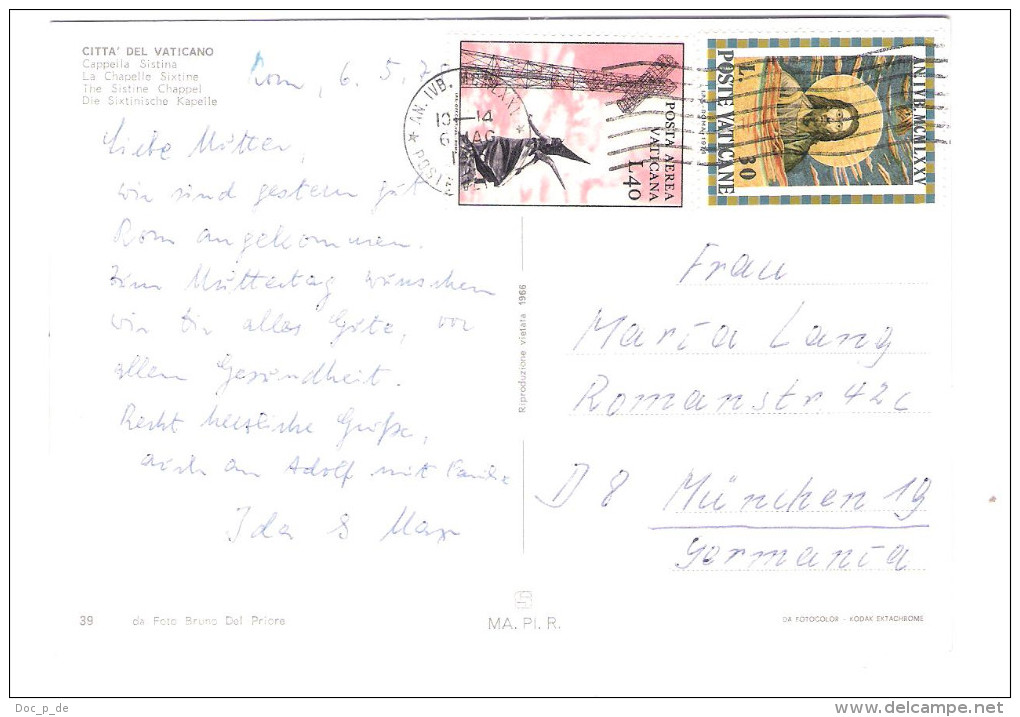 CITTA' DEL VATICANO
Cappella Sistina
La Chapelle Sixtine
The Sistine Chapel
Die Sixtinische Kapelle
Rom, 6. 5. 75
Liebe Mutter,
wir sind gestern gut
Rom angekommen.
Zum Muttertag wünschen
wir Dir alles Gute, vor
allem Gesundheit.
Recht herzliche Grüße,
auch an Adolf mit
Ida & Max
POSTA AEREA
VATICANA
L.40
AN. IVB. MCMLXXV
POSTE VATICANE
L. 30
Frau
Maria Lang
Romanstr. 42c
D 8 München 19
Germania
Riproduzione vietata 1966
39 da Foto Bruno Del Priore
MA. PI. R.
DA FOTOCOLOR - KODAK EKTACHROME
Doc_p_de